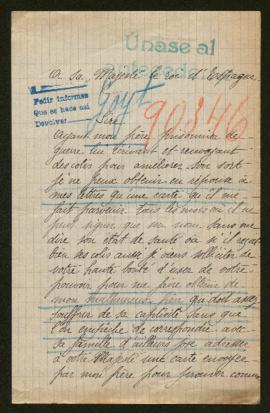 Únase al
antecedente
A Sa Majesté le roi d'Espagne
Pedir informes
Que se hace así
Devolver
Goyt
90846
Sire
Ayant mon père prisonnier de
guerre lui écrivant et renvoyant
des colis pour améliorer son sort
je ne peux obtenir en réponse à
mes lettres qu'une carte qu'il me
fait parvenir tous les mois où il ne
peut signer que son nom sans me
dire son état de santé ou si il reçoit
bien ses colis aussi j'ose solliciter de
votre haute bonté d'user de votre
pouvoir pour me faire obtenir de
mon malheureux père qui doit assez
souffrir de sa captivité sans que
l'on empêche de correspondre avec
sa famille d'ailleurs j'ose adresser
à votre Majesté une carte envoyée
par mon père pour prouver comme